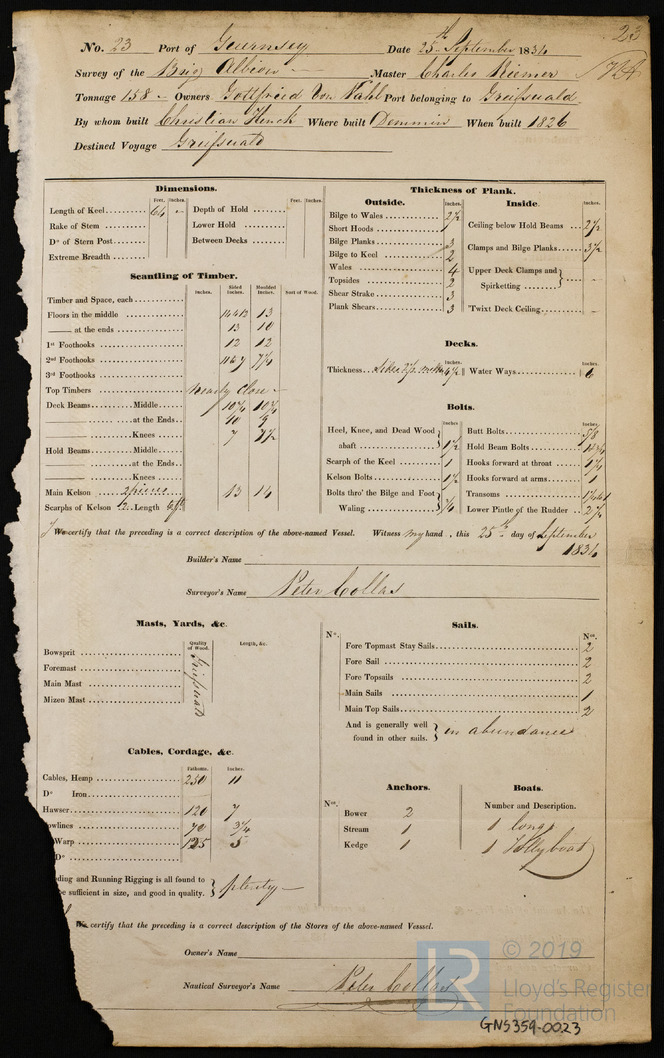 23
No. 23 Port of Guernsey Date 25th September 1834
Survey of the Brig Albion Master Charles Kiemer
Tonnage 158 Owners Gottfried Von Vahl Port belonging to Greifswald
By whom built Christian Henck Where built Demmin When built 1826
Destined Voyage Greifswald
Dimensions.
Feet. Inches. Feet. Inches.
Length of Keel 64 - Depth of Hold
Rake of Stem Lower Hold
Do of Stern Post Between Decks
Extreme Breadth
Scantling of Timber.
Inches. Sided Inches. Moulded Inches. Sort of Wood.
Timber and Space, each
Floors in the middle 13
at the ends 13 10
1st Foothooks 12 12
2nd Foothooks
3rd Foothooks
Top Timbers nearly close
Deck Beams Middle 10½ 10½
at the Ends 10 9
Knees 7 7½
Hold Beams Middle
at the Ends
Knees
Main Kelson 2 pieces 13 14
Scarphs of Kelson Length
Thickness of Plank.
Outside.
Inches.
Bilge to Wales 2½
Short Hoods
Bilge Planks 3
Bilge to Keel 2
Wales 4
Topsides 3
Shear Strake 3
Plank Shears 3
Inside.
Inches.
Ceiling below Hold Beams 2½
Clamps and Bilge Planks 3½
Upper Deck Clamps and
Spirketting -
Twixt Deck Ceiling -
Decks.
Inches. Inches.
Thickness Water Ways 6
Bolts.
Inches. Inches.
Heel, Knee, and Dead Wood abaft 1½ Butt Bolts 5/8
Hold Beam Bolts
Scarph of the Keel 1 Hooks forward at throat
Kelson Bolts Hooks forward at arms 1
Bolts thro' the Bilge and Foot Waling Transoms
Lower Pintle of the Rudder 2½
I We certify that the preceding is a correct description of the above-named Vessel. Witness my hand, this 25th day of September 1834
Builder's Name
Surveyor's Name Peter Collas
Masts, Yards, &c.
Quality of Wood. Length, &c.
Bowsprit
Foremast
Main Mast
Mizen Mast
Greifswald
Sails.
No. Nos.
Fore Topmast Stay Sails 2
Fore Sail 2
Fore Topsails 2
Main Sails 1
Main Top Sails 2
And is generally well
found in other sails. in abundance
Cables, Cordage, &c.
Fathoms. Inches.
Cables, Hemp 230 11
Do Iron
Hawser 120 7
owlines 70
Warp 5
Do
ding and Running Rigging is all found to
be sufficient in size, and good in quality. plenty
Anchors.
Nos.
Bower 2
Stream 1
Kedge 1
Boats.
Number and Description.
1 long
1 Jollyboat
I We certify that the preceding is a correct description of the Stores of the above-named Vesssel.
Owner's Name
Nautical Surveyor's Name Peter Collas
LR © 2019
Lloyd's Register
Foundation
GNS359-0023